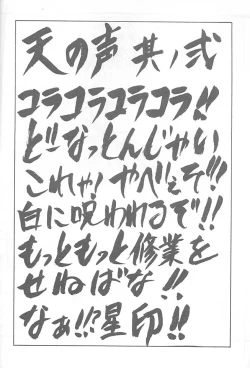 天の声 其ノ弐
コラコラコラコラ!!
どーなっとんじゃい
これゃ!やべぇぞ!!
白に呪われるぞ!!
もっともっと修業を
せねばな!!
なぁ!!?星印!!